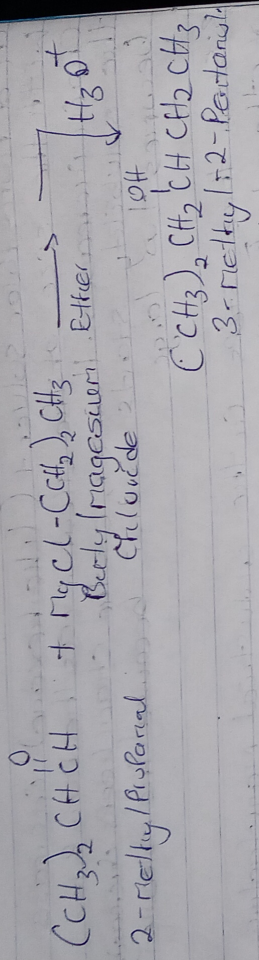 O
||
(CH3)2 CHCH + MgCl-(CH2)2 CH3 → H3O+
Ether
2-methylPropanal
Butylmagesium
Chloride
OH
(CH3)2 CH2 CH CH2 CH3
3-methyl-2-Pentanol